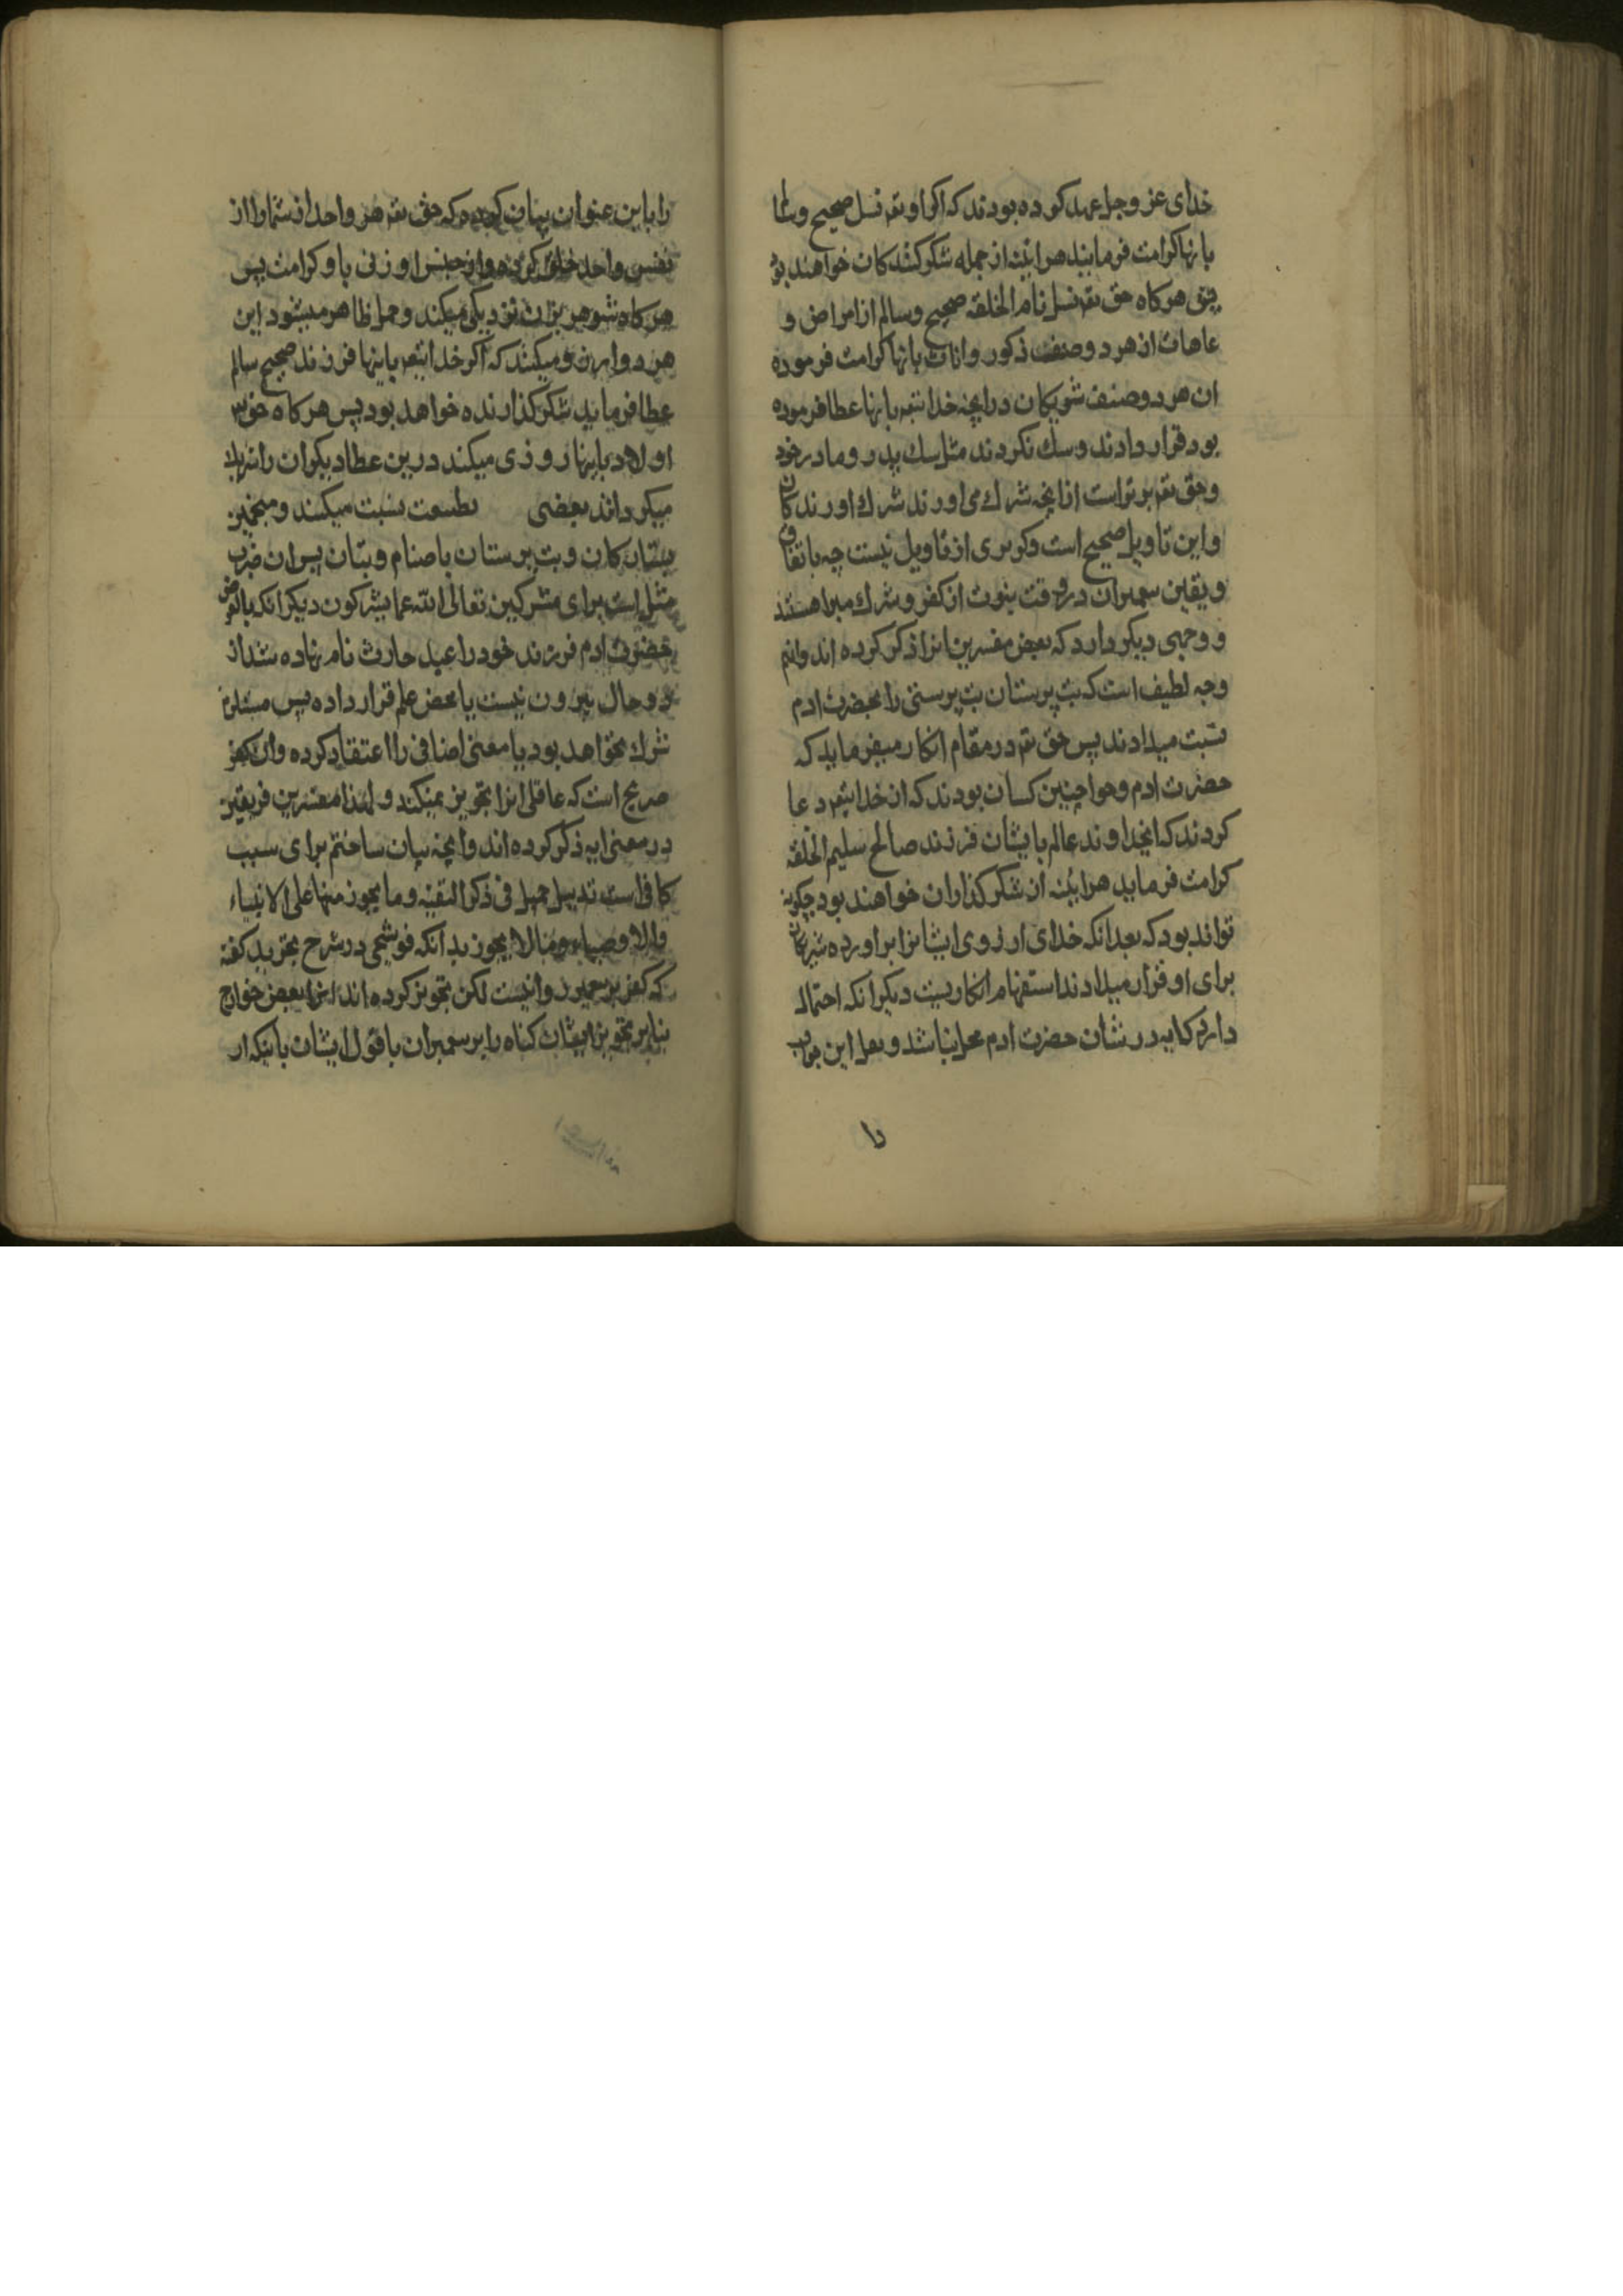 خدای عز و جل عهد کرده بودند که اگر او تعه نسل صحیح و سالم
بانها کرامت فرمایند هراینه از جمله شکر کنندکان خواهند بود
پس هرکاه حق تعه نسل تام الخلقه صحیح و سالم از امراض و
عاهات از هر دو صنف ذکور و اناث بانها کرامت فرموده
ان هر دو صنف شریکان در انچه خدا تعه بانها عطا فرموده
بود قرار دادند و سك نکردند مثل سك پدر و مادر خود
و حق تعه برتر است از انچه شرك می اورند شرك اورندکان
و این تاویل صحیح است و کریزی از تاویل نیست چه باتفاق
و یقین پیمبران در وقت نبوت از کفر و شرك مبرا هستند
و وجهی دیکر دارد که بعض مفسرین انرا ذکر کرده اند و انهم
وجه لطیف است که بت پرستان بت پرستی را بحضرت ادم
نسبت میدادند پس حق تعه در مقام انکار میفرماید که
حضرت ادم و حوا چنین کسان بودند که از خدا تعه دعا
کردند که ایخداوند عالم بایشان فرزند صالح سلیم الخلقه
کرامت فرماید هراینه از شکر کذاران خواهند بود چکونه
تواند بود که بعد انکه خدای ارزوی ایشانرا براورده شریکان
برای او قرار میدادند استفهام انکاریست دیکر انکه احتمال
دارد که ایه در شان حضرت ادم محل نباشد و بعد این جواب
را
را باین عنوان بیان کرده که حق تعه هر واحد از شما را از
نفس واحد خلق کرده و از جنس او زنی باو کرامت پس
هر کاه شوهر بزن نزدیکی میکند و حمل ظاهر میشود این
هر دو ارزو میکنند که اکر خدا تعه باینها فرزند صحیح سالم
عطا فرماید شکر کذارنده خواهد بود پس هر کاه حق تعه
اولاد باینها روزی میکند درین عطا دیکران را شریك
میکرداند بعضی بطبیعت نسبت میکنند و منجمین
بستارکان و بت پرستان باصنام و بتان پس ان ضرب
مثل است برای مشرکین تعالی الله عما یشرکون دیکر انکه بالفرض
حضرت ادم فرزند خود را عبد حارث نام نهاده شد از
دو حال بیرون نیست یا محض علم قرار داده پس مستلزم
شرك نخواهد بود یا معنی اضافی را اعتقاد کرده و ان کفر
صریح است که عاقلی انرا تجویز نمیکند و لهذا مفسرین فریقین
در معنی ایه ذکر کرده اند و انچه بیان ساختم برای سبب
کافی است تذییل جمیل فی ذکر التقیه و ما یجوز منها علی الانبیاء
و الاوصیاء و ما لا یجوز بدانکه قوشجی در شرح تجرید کفته
که کفر بر پیمبر روا نیست لکن تجویز کرده اند انرا بعض خوارج
بنابر تجویز ایشان کناه را بر پیمبران با قول ایشان باینکه ار